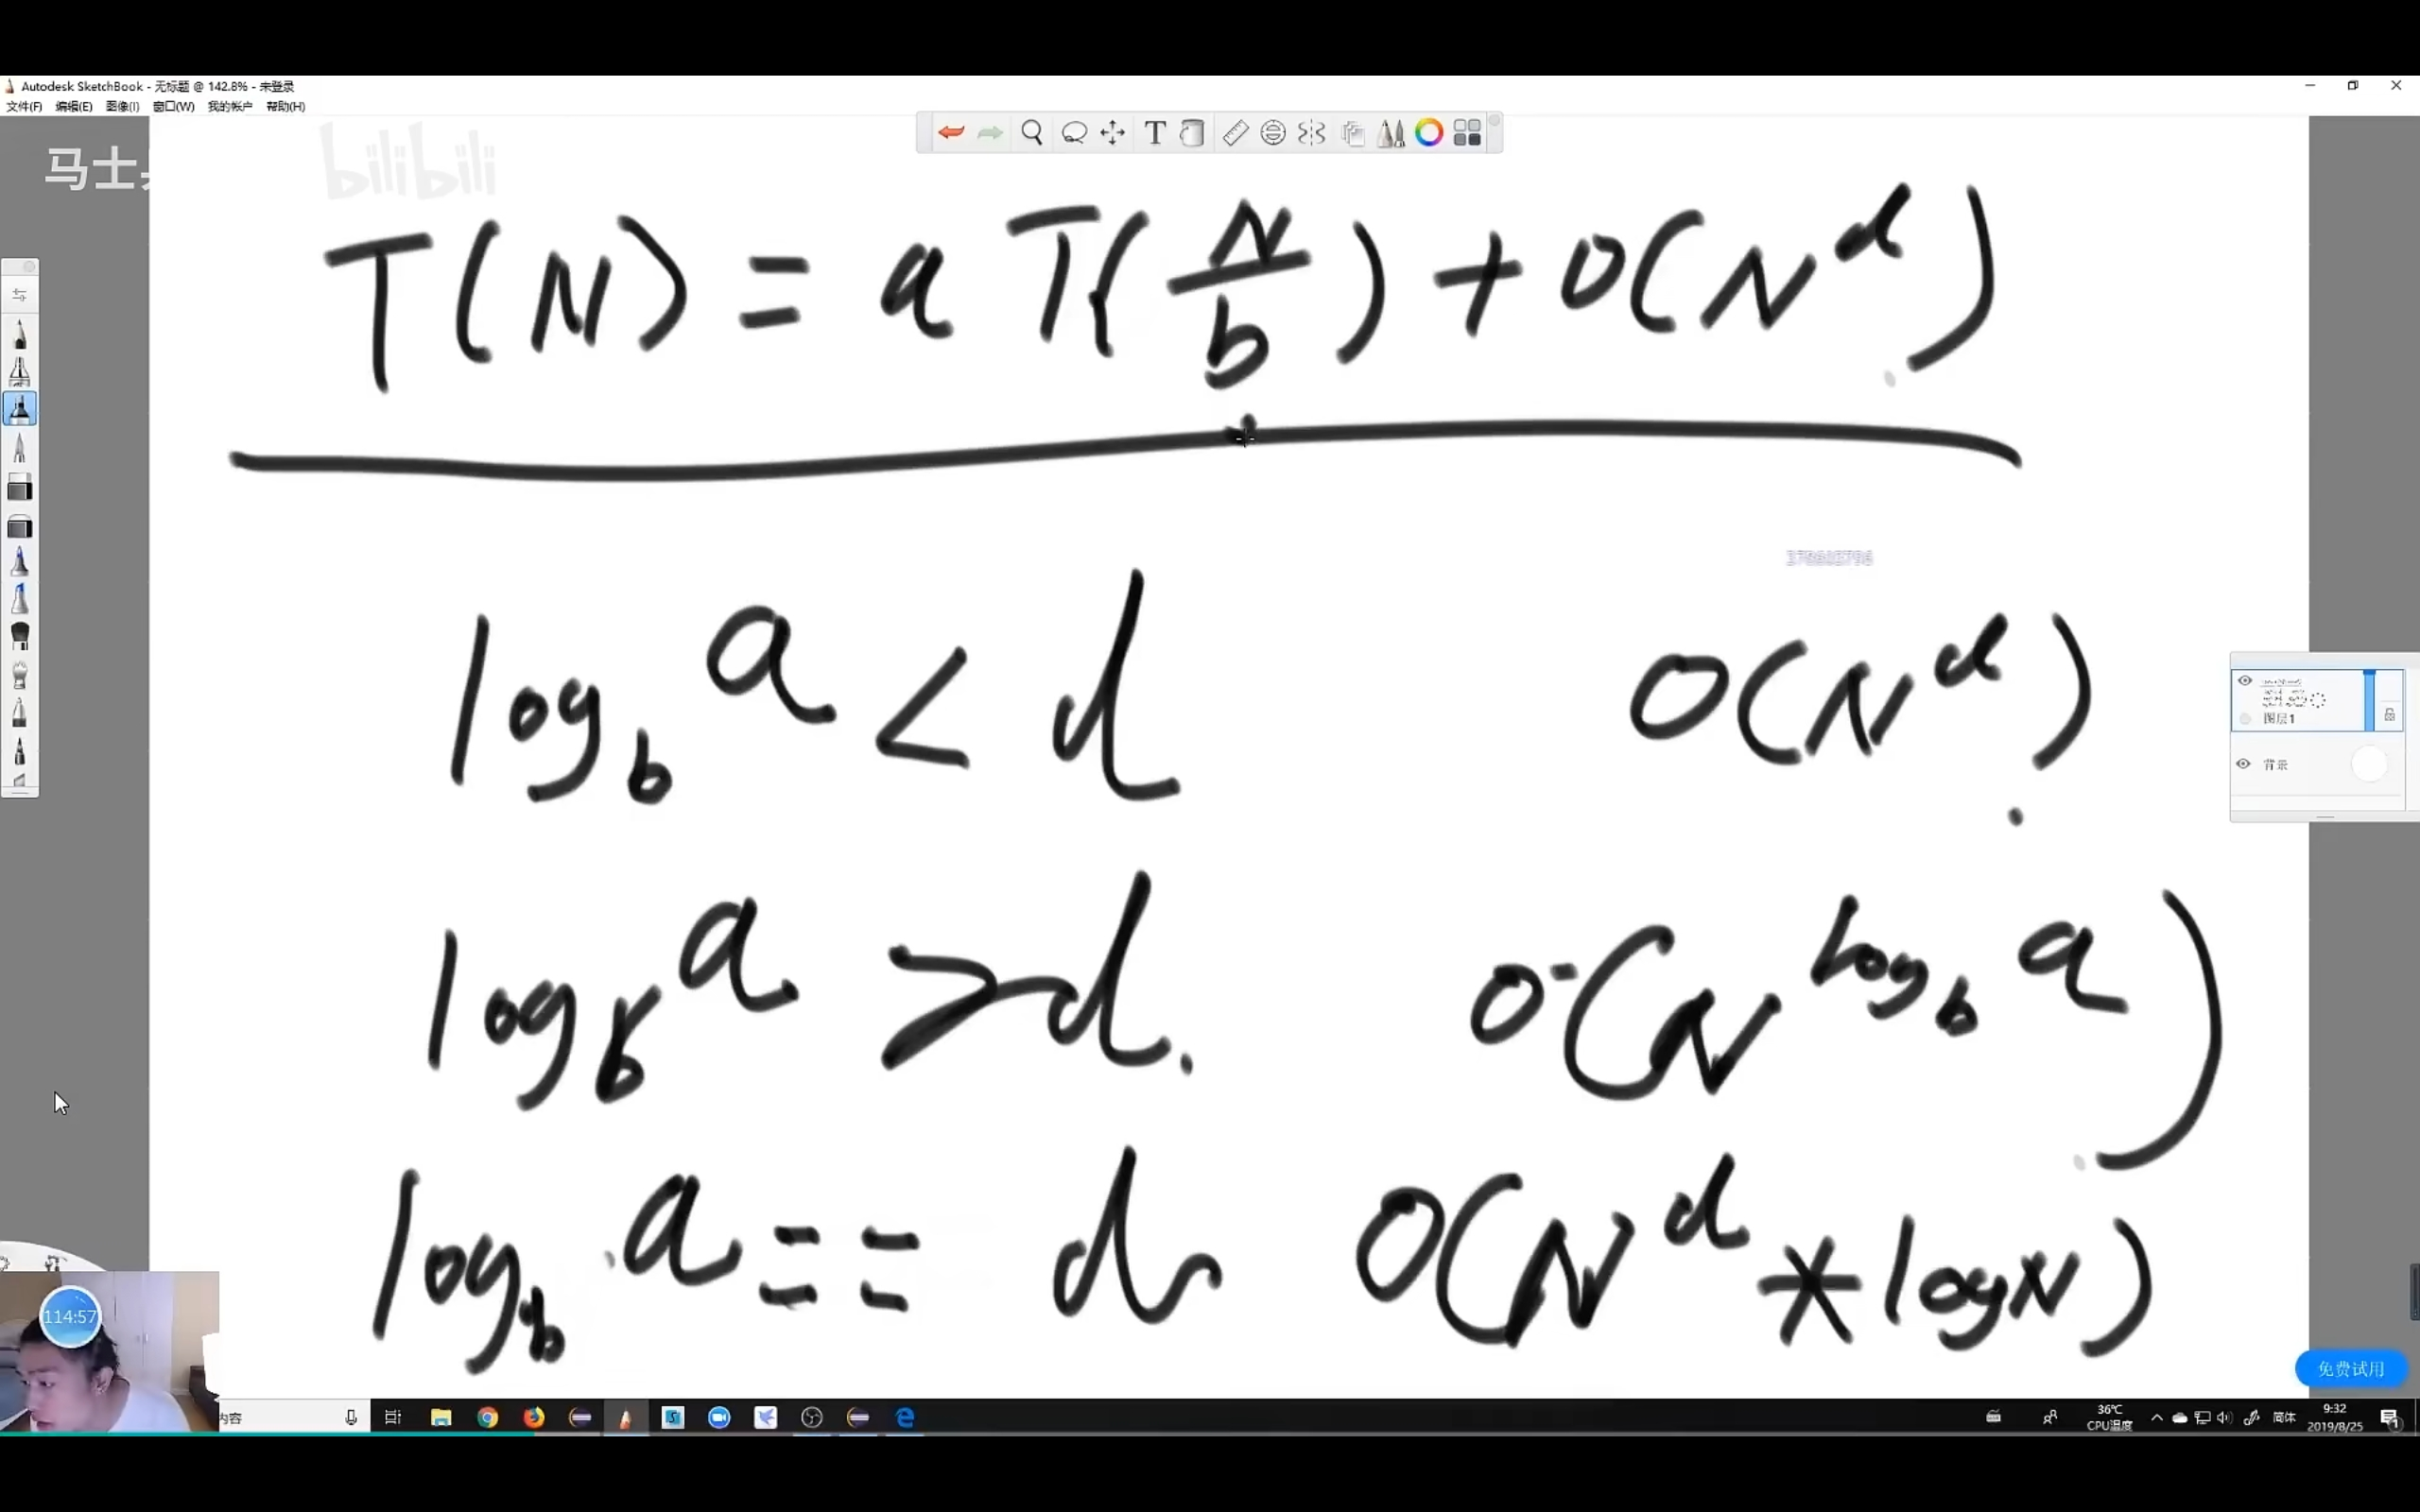 Autodesk SketchBook - 无标题 @ 142.8% - 未登录
文件(F) 编辑(E) 图像(I) 窗口(W) 我的帐户 帮助(H)
马士
bilibili
T(N) = a T(N/b) + O(N^d)
log_b a < d O(N^d)
图层1
背景
log_b a > d. O(N^log_b a)
log_b a == d O(N^d * logN)
114:57
免费试用
内容
36℃
CPU温度
简体
9:32
2019/8/25
1